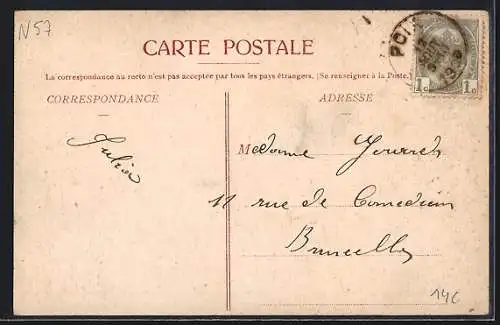 N57
CARTE POSTALE
La correspondance au recto n'est pas acceptée par tous les pays étrangers. (Se renseigner à la Poste.)
CORRESPONDANCE
ADRESSE
1c 1c
Madame
11 rue de Comedien
Bruxelles
14C